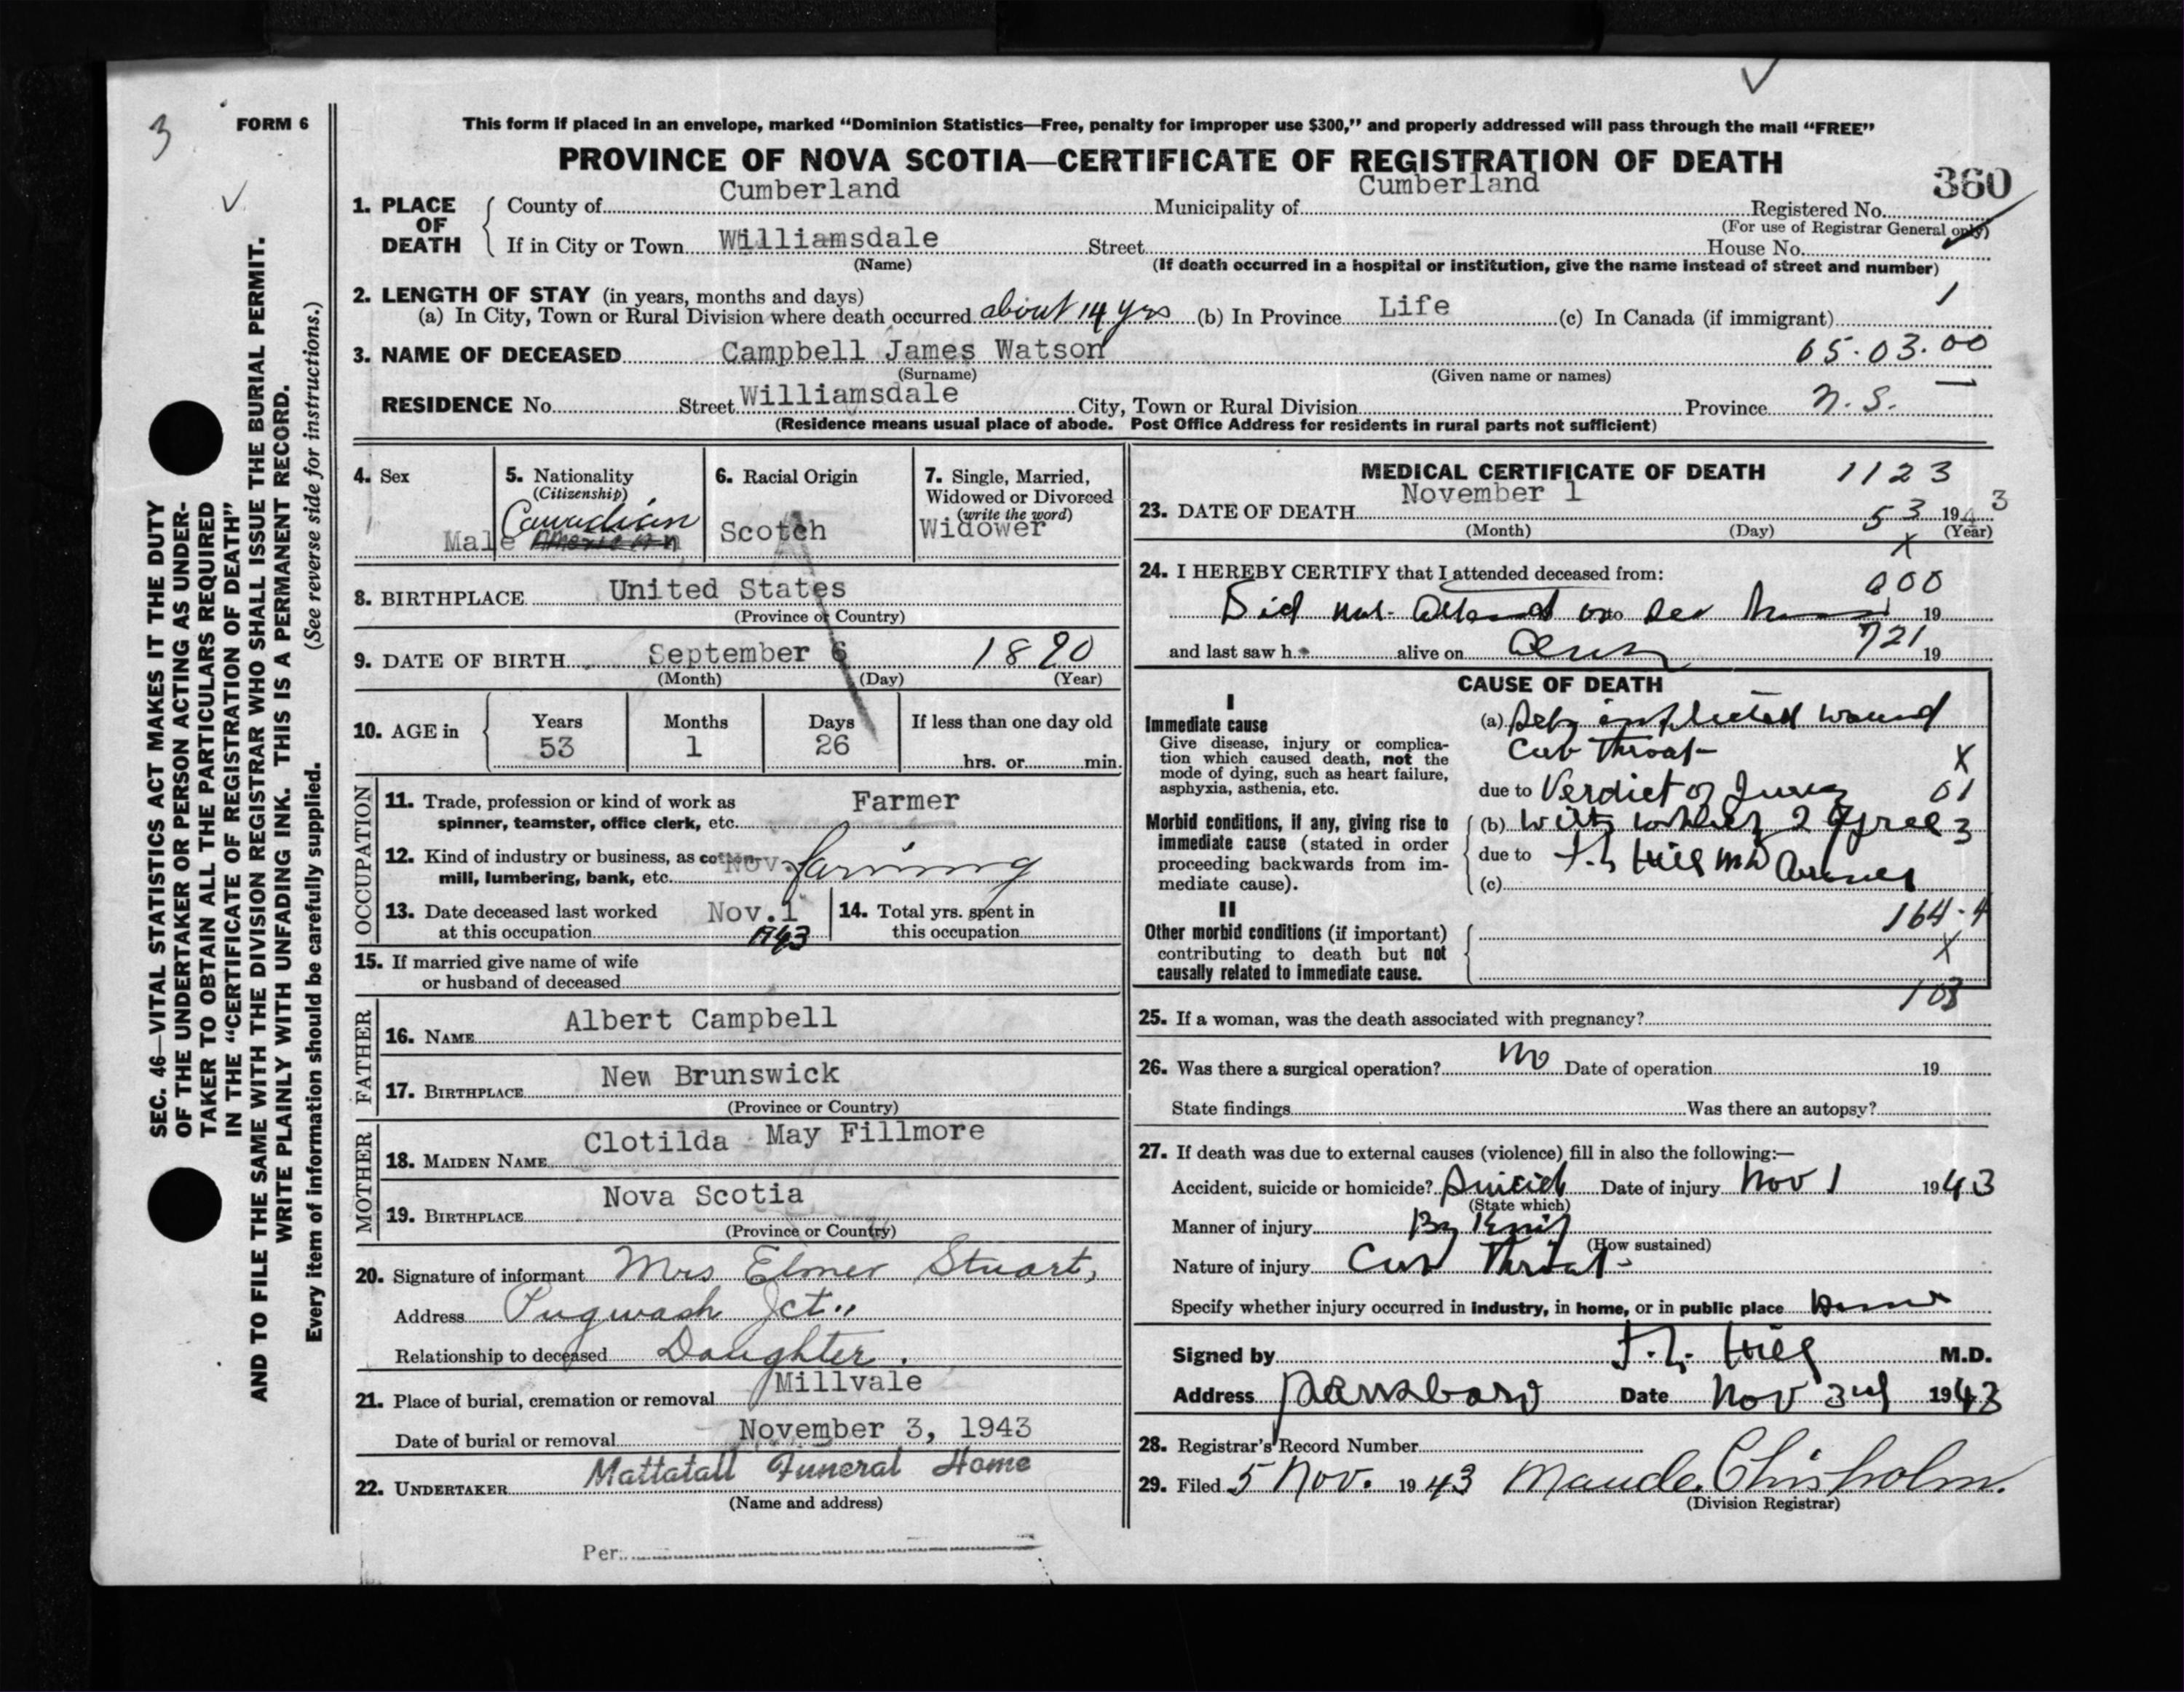 3
FORM 6
This form if placed in an envelope, marked “Dominion Statistics—Free, penalty for improper use $300,” and properly addressed will pass through the mail “FREE”
PROVINCE OF NOVA SCOTIA—CERTIFICATE OF REGISTRATION OF DEATH
360
1. PLACE OF DEATH
County of Cumberland Municipality of Cumberland Registered No.
(For use of Registrar General only)
If in City or Town Williamsdale Street House No.
(Name) (If death occurred in a hospital or institution, give the name instead of street and number)
2. LENGTH OF STAY (in years, months and days)
(a) In City, Town or Rural Division where death occurred about 14 yrs (b) In Province Life (c) In Canada (if immigrant) 1
3. NAME OF DECEASED Campbell James Watson 65·03·00
(Surname) (Given name or names)
RESIDENCE No. Street Williamsdale City, Town or Rural Division Province N.S.
(Residence means usual place of abode. Post Office Address for residents in rural parts not sufficient)
4. Sex
Male
5. Nationality
(Citizenship)
Canadian
American
6. Racial Origin
Scotch
7. Single, Married,
Widowed or Divorced
(write the word)
Widower
8. BIRTHPLACE United States
(Province or Country)
9. DATE OF BIRTH September 6 1890
(Month) (Day) (Year)
10. AGE in
Years Months Days If less than one day old
53 1 26
hrs. or min.
OCCUPATION
11. Trade, profession or kind of work as
spinner, teamster, office clerk, etc. Farmer
12. Kind of industry or business, as cotton-
mill, lumbering, bank, etc. Nov. farming
13. Date deceased last worked
at this occupation Nov. 1
1943
14. Total yrs. spent in
this occupation
15. If married give name of wife
or husband of deceased
FATHER
16. NAME Albert Campbell
17. BIRTHPLACE New Brunswick
(Province or Country)
MOTHER
18. MAIDEN NAME Clotilda May Fillmore
19. BIRTHPLACE Nova Scotia
(Province or Country)
20. Signature of informant Mrs Elmer Stuart,
Address Pugwash Jct.,
Relationship to deceased Daughter.
21. Place of burial, cremation or removal Millvale
Date of burial or removal November 3, 1943
22. UNDERTAKER Mattatall Funeral Home
(Name and address)
Per
MEDICAL CERTIFICATE OF DEATH 1123
23. DATE OF DEATH November 1 53 1943
(Month) (Day) (Year)
X
24. I HEREBY CERTIFY that I attended deceased from:
000
Did not attend or to see 19
and last saw h alive on 721 19
CAUSE OF DEATH
I
Immediate cause
Give disease, injury or complica-
tion which caused death, not the
mode of dying, such as heart failure,
asphyxia, asthenia, etc.
(a) Self inflicted wound
Cut Throat
X
due to Verdict of Jury 01
Morbid conditions, if any, giving rise to
immediate cause (stated in order
proceeding backwards from im-
mediate cause).
(b) with which I agree 3
due to F. L. Hill MD Coroner
(c)
II
Other morbid conditions (if important)
contributing to death but not
causally related to immediate cause.
164-4
X
108
25. If a woman, was the death associated with pregnancy?
26. Was there a surgical operation? No Date of operation 19
State findings Was there an autopsy?
27. If death was due to external causes (violence) fill in also the following:—
Accident, suicide or homicide? Suicide Date of injury Nov 1 1943
(State which)
Manner of injury By Knife
(How sustained)
Nature of injury Cut Throat
Specify whether injury occurred in industry, in home, or in public place Home
Signed by F. L. Hill M.D.
Address Parrsboro Date Nov 3rd 1943
28. Registrar's Record Number
29. Filed 5 Nov. 1943 Maude Chisholm.
(Division Registrar)
SEC. 46—VITAL STATISTICS ACT MAKES IT THE DUTY
OF THE UNDERTAKER OR PERSON ACTING AS UNDER-
TAKER TO OBTAIN ALL THE PARTICULARS REQUIRED
IN THE “CERTIFICATE OF REGISTRATION OF DEATH”
AND TO FILE THE SAME WITH THE DIVISION REGISTRAR WHO SHALL ISSUE THE BURIAL PERMIT.
WRITE PLAINLY WITH UNFADING INK. THIS IS A PERMANENT RECORD.
Every item of information should be carefully supplied. (See reverse side for instructions.)